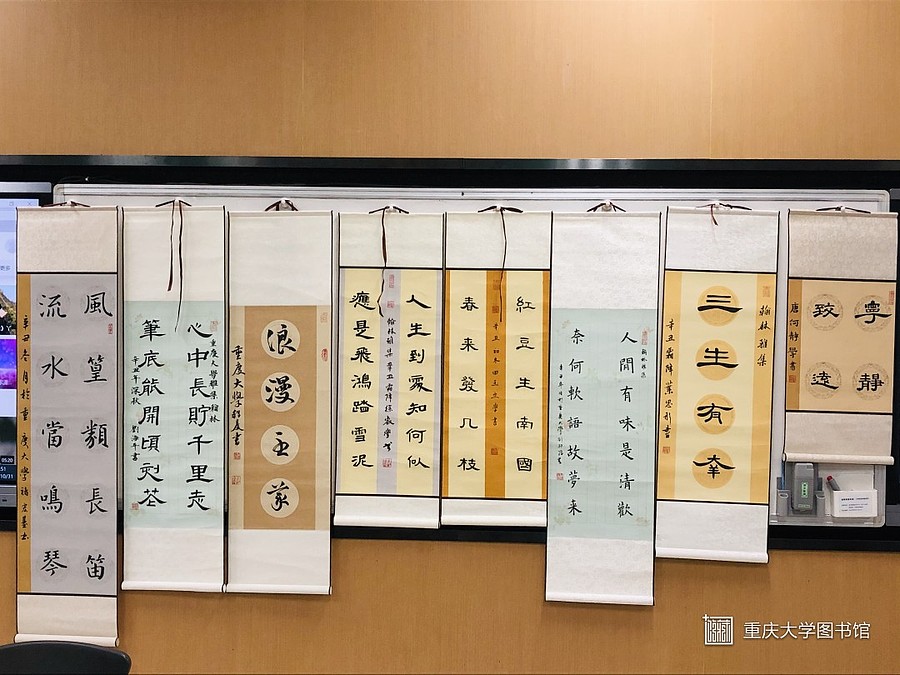 風篁類長笛
流水當鳴琴
辛丑冬月於重慶大學
心中長貯千里志
重慶大學雅集翰林
筆底能開頃刻花
辛丑年深秋
浪漫主義
重慶大學
人生到處知何似
翰林雅集辛丑霜降
應是飛鴻踏雪泥
紅豆生南國
春來發几枝
人間有味是清歡
翰林雅集
奈何軟語故夢来
翰林雅集
三生有幸
辛丑霜降葉思彤書
寧靜
致遠
唐何靜學書
重庆大学图书馆